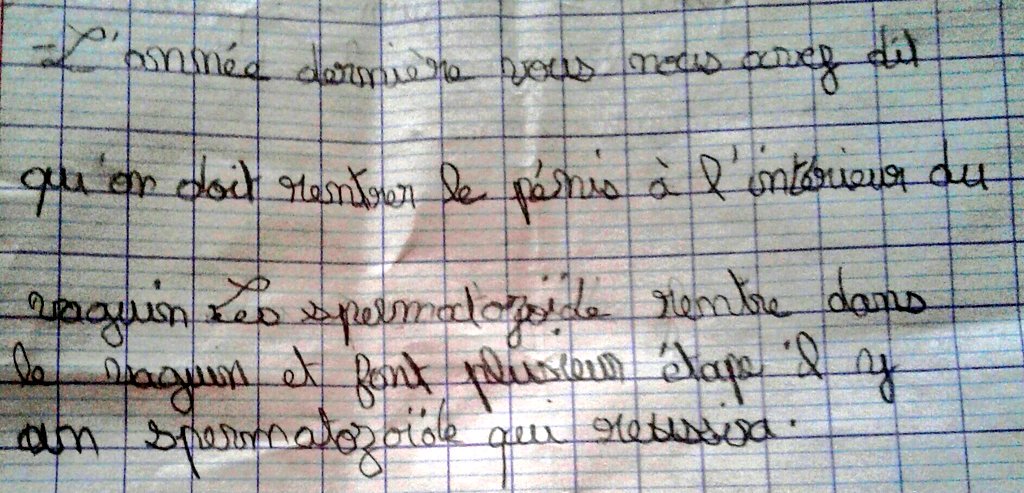 - L'année dernière vous nous avez dit
qu'on doit rentrer le pénis à l'intérieur du
vaguin Les spermatozoïde rentre dans
le vaguin et font plusieur étape il y
an spermatozoïde qui reussira.